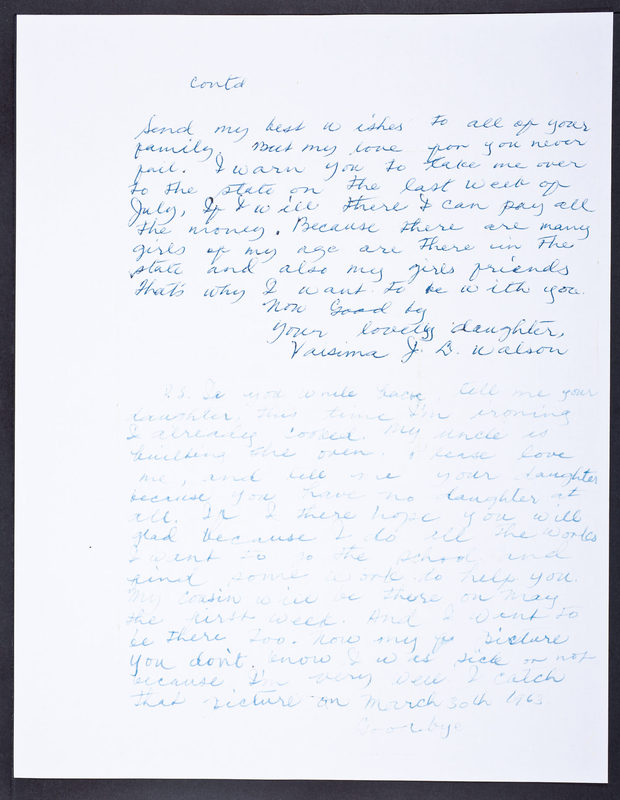 contd
Send my best wishes to all of your
family. But my love for you never
fail. I warn you to take me over
to the state on the last week of
July, If I will there I can pay all
the money. Because there are many
girls of my age are there in the
state and also my girls friends
that's why I want to be with you.
Now Good by
Your lovely daughter,
J. B. Watson
P.S. If you write back, tell me your
daughter. This time I'm ironing
I already cooked. My uncle is
the oven. Please love
me, and tell me your daughter
because you have no daughter at
all. If I there hope you will
glad because I do all the works
I want to go the school and
find some work to help you.
My cousin will be there on May
the first week. And I want to
be there too. Now my picture
you don't know I was sick or not
because I'm very well I catch
that picture on March 30th 1963.
Goodbye